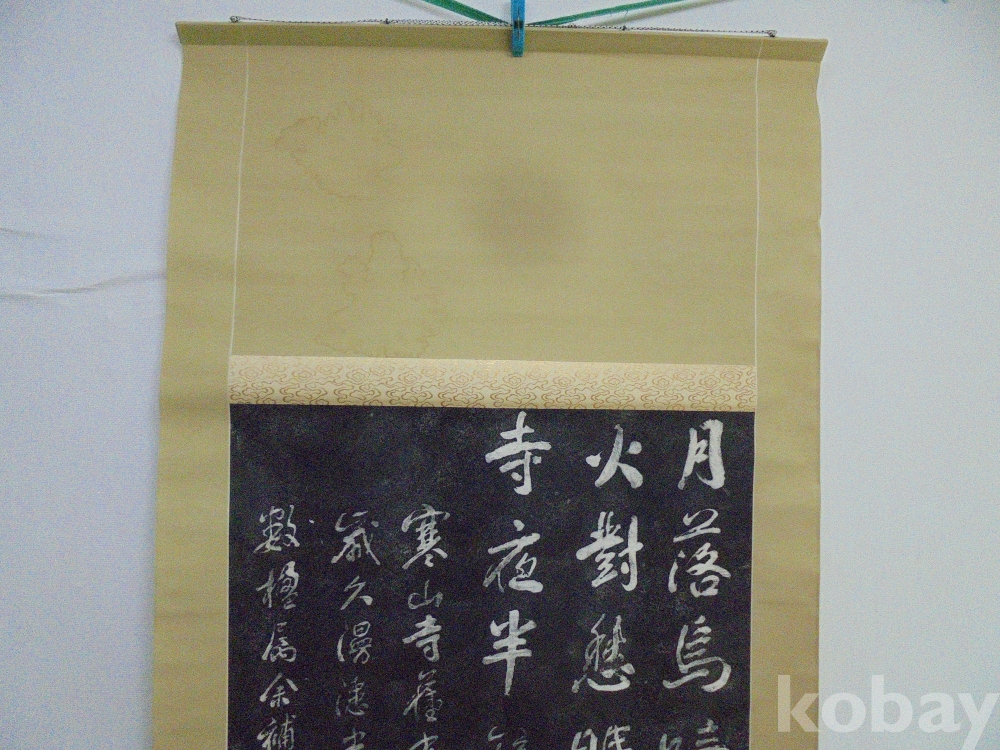 月落烏
火對愁眠
寺夜半
寒山寺舊
歲久漫漶
數楹屬余補
kobay